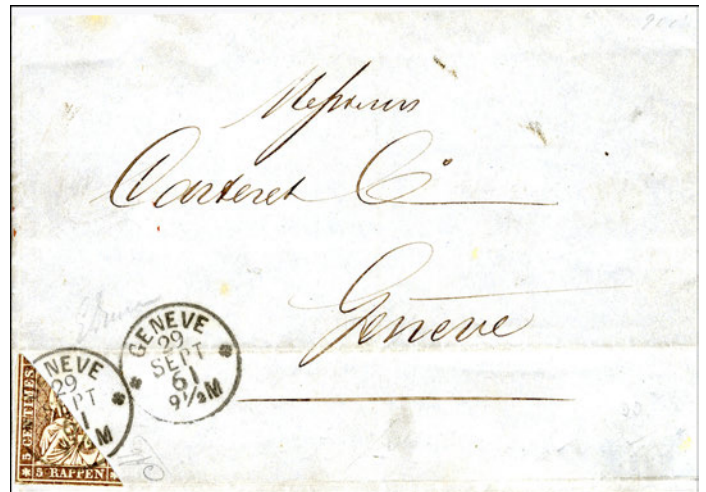 Messieurs
Carteret Co
Genève
GENEVE
29
SEPT
61
9½M
NEVE
29
PT
1
M
5 CENTIMES
5 RAPPEN